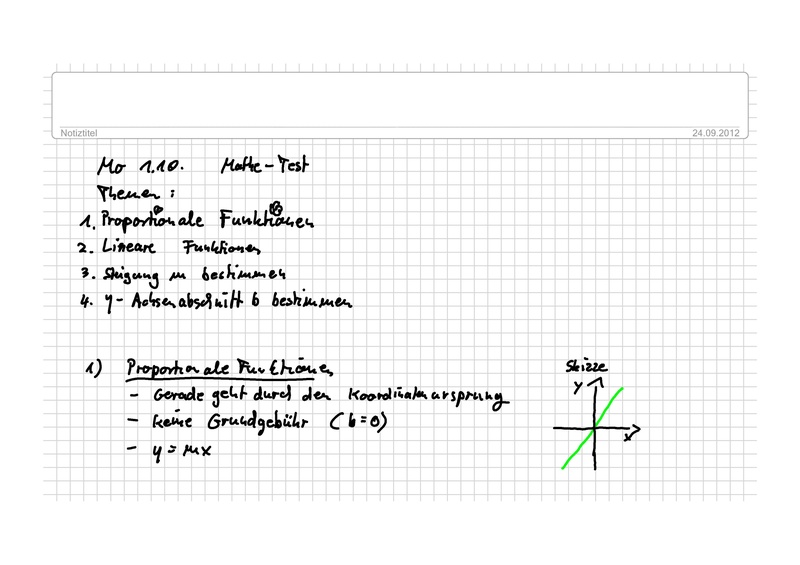 Notiztitel 24.09.2012
Mo 1.10. Mathe-Test
Themen:
1. Proportionale Funktionen
2. Lineare Funktionen
3. Steigung m bestimmen
4. y-Achsenabschnitt b bestimmen
1) Proportionale Funktionen
- Gerade geht durch den Koordinatenursprung
- keine Grundgebühr (b=0)
- y = mx
Skizze
y
x